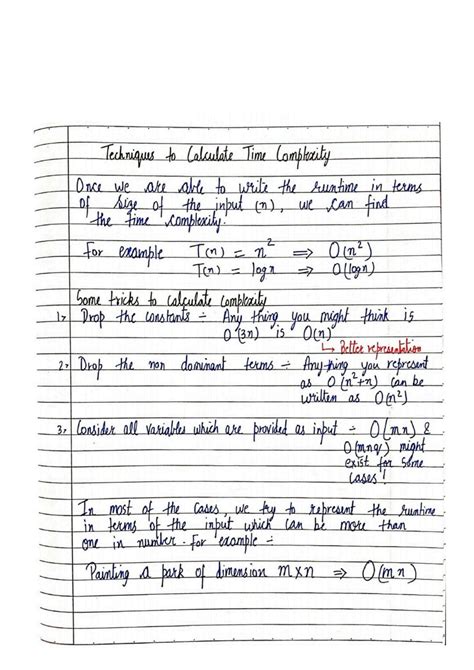 Techniques to Calculate Time Complexity
Once we are able to write the runtime in terms
of size of the input (n), we can find
the time complexity.
For example T(n) = n² ⇒ O(n²)
T(n) = log n ⇒ O(log n)
Some tricks to calculate complexity
1> Drop the constants ÷ Any thing you might think is
O(3n) is O(n)
↳ Better representation
2> Drop the non dominant terms ÷ Any thing you represent
as O(n²+n) can be
written as O(n²)
3> Consider all variables which are provided as input ÷ O(mn) &
O(mnq) might
exist for some
cases!
In most of the cases, we try to represent the runtime
in terms of the input which can be more than
one in number. For example ÷
Painting a park of dimension m×n ⇒ O(mn)